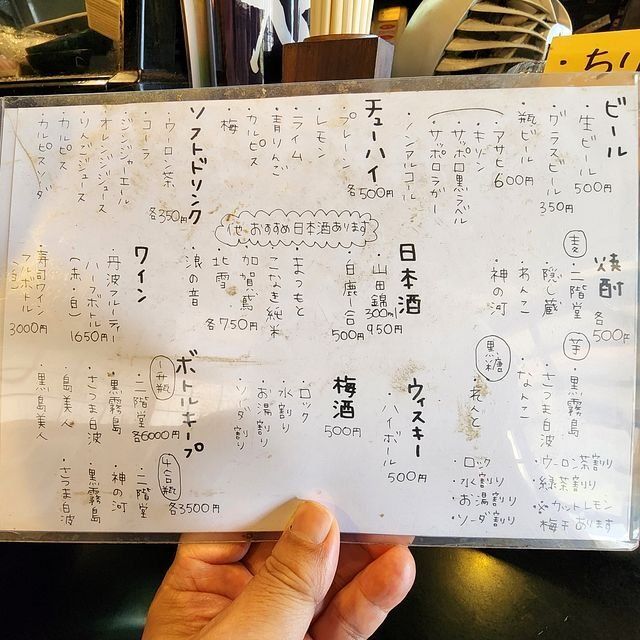 ちり
ビール
・生ビール 500円
・グラスビール 350円
・瓶ビール 600円
・アサヒ
・キリン
・サッポロ黒ラベル
・サッポロラガー
・ノンアルコール
チューハイ
各500円
・プレーン
・レモン
・ライム
・青りんご
・カルピス
・梅
ソフトドリンク
各350円
・ウーロン茶
・コーラ
・ジンジャーエール
・オレンジジュース
・カルピス
・カルピスソーダ
他、おすすめ日本酒あります
焼酎
各500円
麦
・二階堂
・隠し蔵
・あんこ
・神の河
芋
・黒霧島
・さつま白波
・なんこ
黒糖
・れんと
・ロック
・水割り
・お湯割り
・ソーダ割り
・ウーロン茶割り
・緑茶割り
※カットレモン
梅干あります
日本酒
・山田錦 300ml 950円
・白鹿一合 500円
・まつもと
・こなき純米
・加賀鳶
・北雪
・浪の音
各750円
ワイン
・丹波フルーティー
ハーフボトル
(赤・白) 1650円
・寿司ワイン
フルボトル
(白) 3000円
ウィスキー
・ハイボール 500円
梅酒
500円
・ロック
・水割り
・お湯割り
・ソーダ割り
ボトルキープ
升瓶
各6000円
・二階堂
・黒霧島
・さつま白波
・島美人
・黒島美人
4合瓶
各3500円
・二階堂
・神の河
・黒霧島
・さつま白波